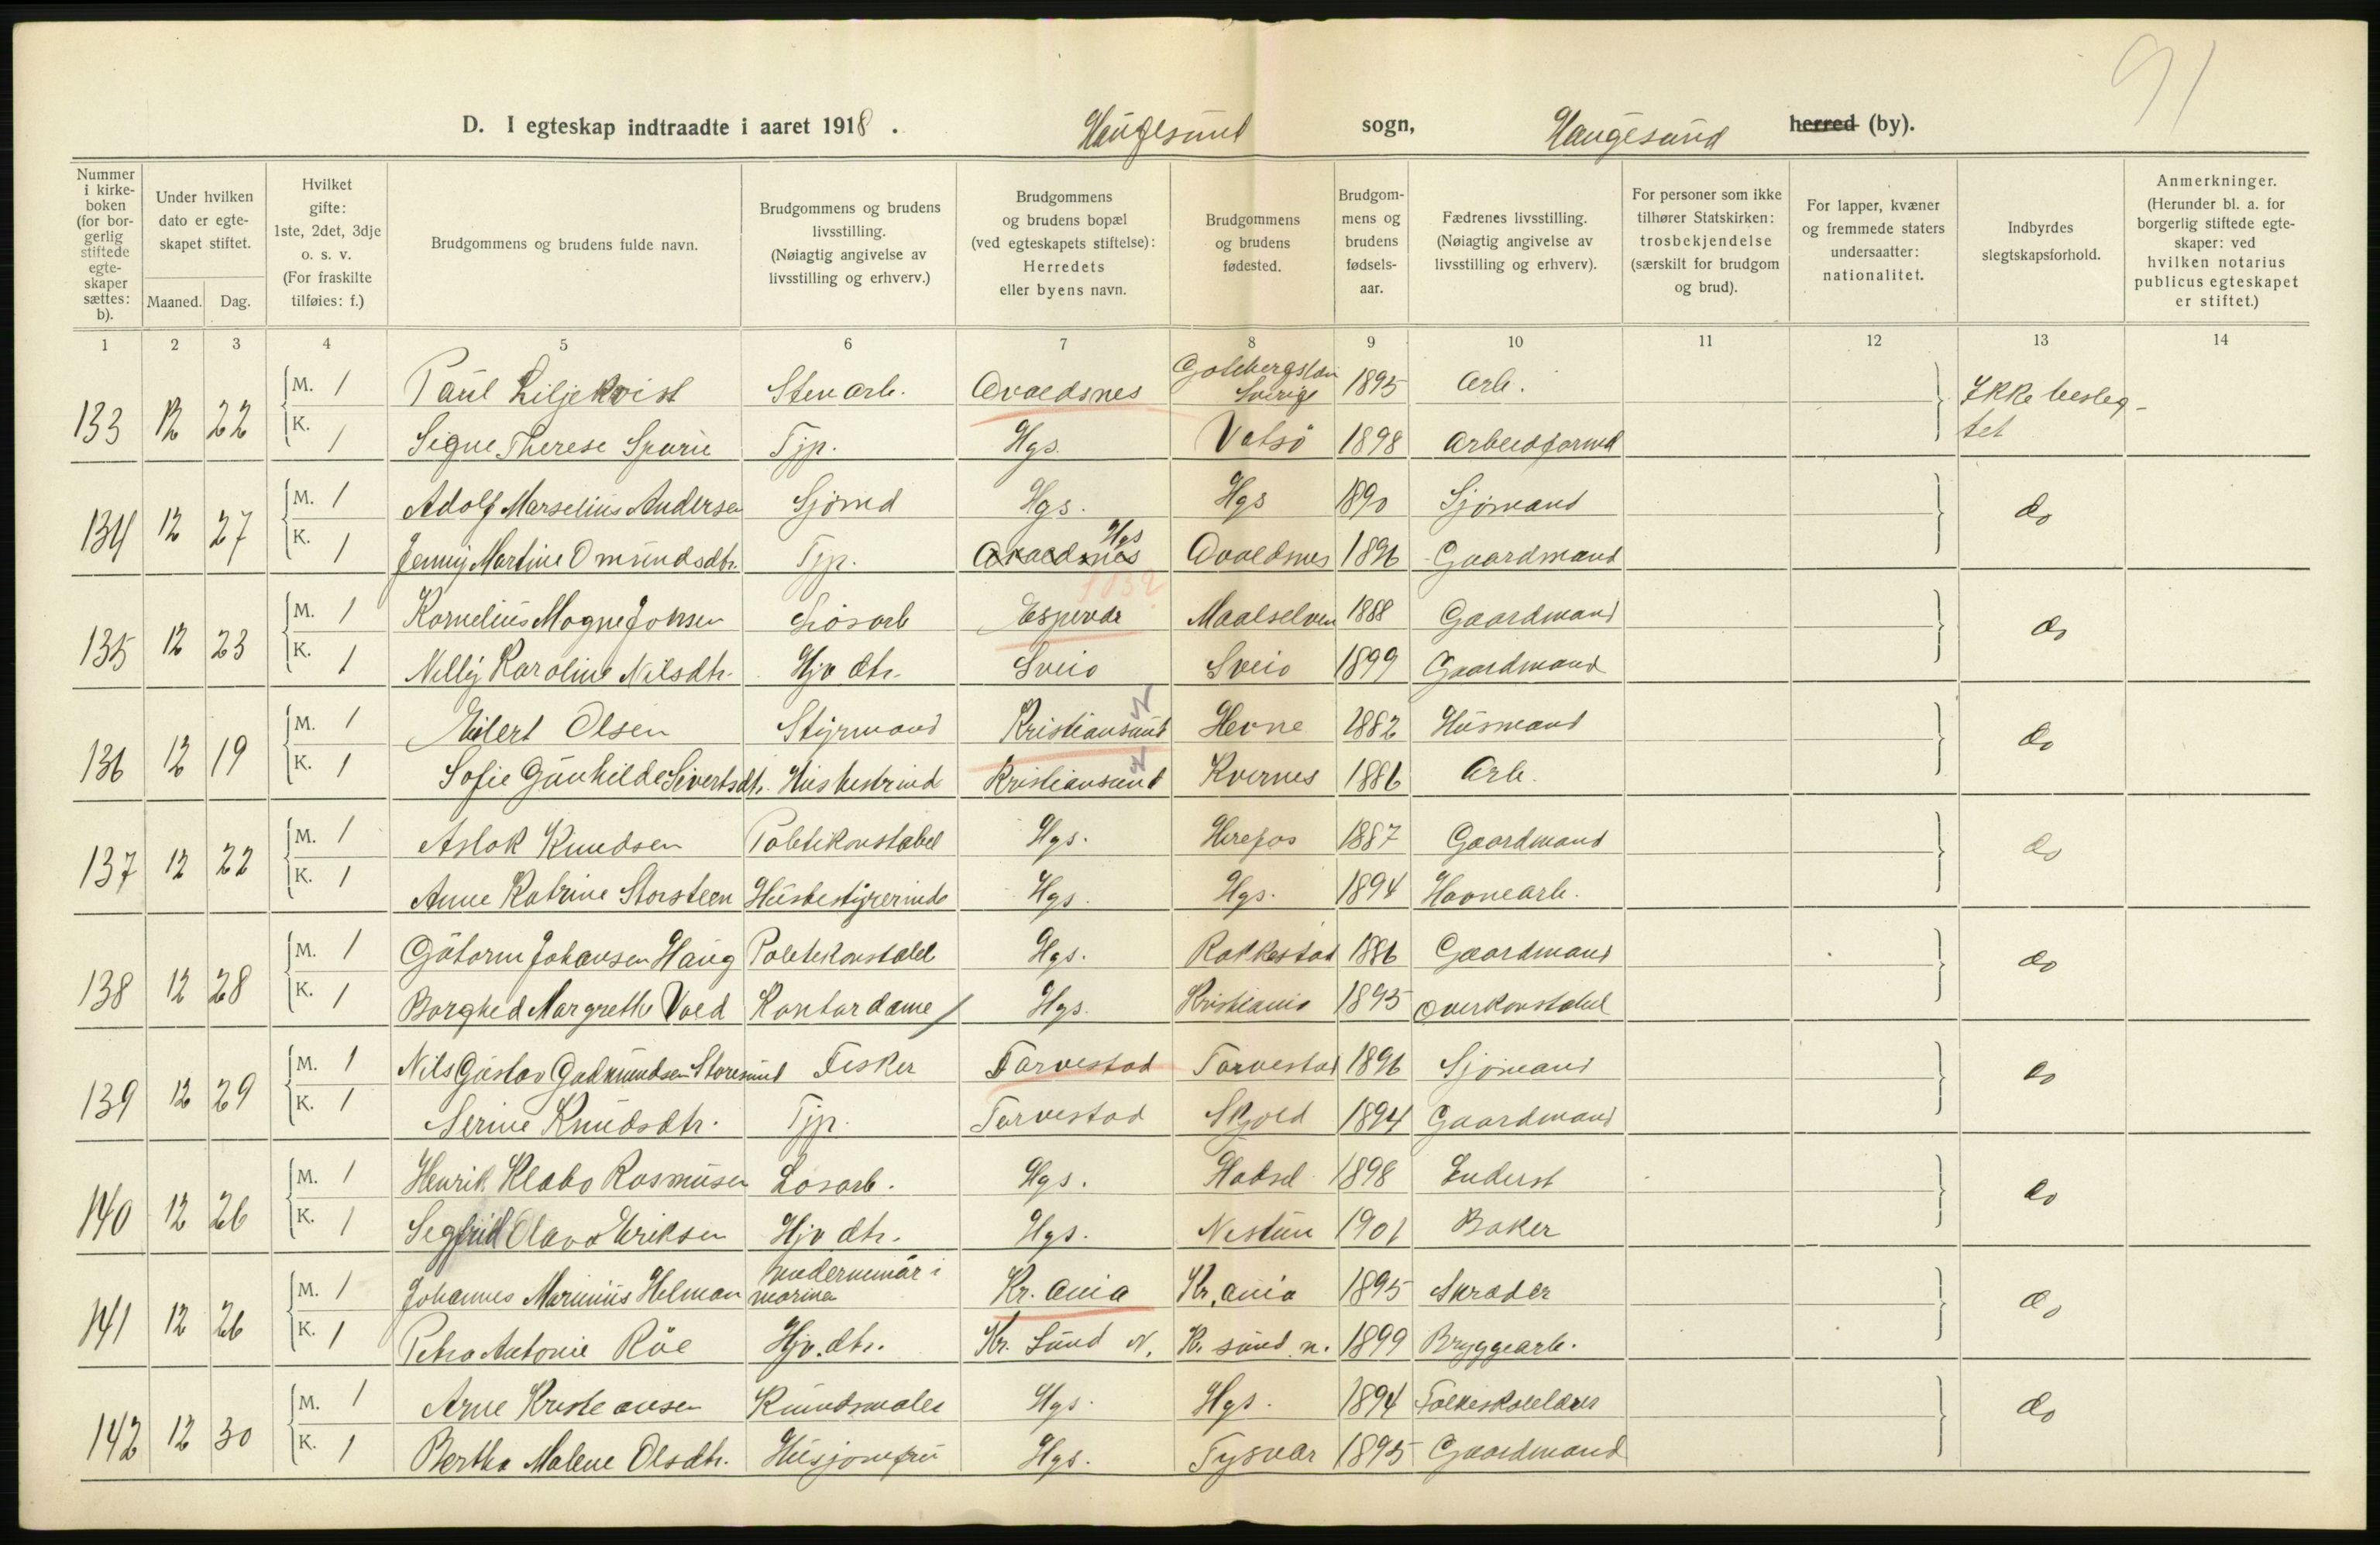 91
D. I egteskap indtraadte i aaret 1918. Haugesund sogn, Haugesund herred (by).
Nummer i kirkeboken (for borgerlig stiftede egteskaper sættes: b).
Under hvilken dato er egteskapet stiftet.
Maaned. Dag.
Hvilket gifte: 1ste, 2det, 3dje o. s. v. (For fraskilte tilføies: f.)
Brudgommens og brudens fulde navn.
Brudgommens og brudens livsstilling. (Nøiagtig angivelse av livsstilling og erhverv.)
Brudgommens og brudens bopæl (ved egteskapets stiftelse): Herredets eller byens navn.
Brudgommens og brudens fødested.
Brudgommens og brudens fødselsaar.
Fædrenes livsstilling. (Nøiagtig angivelse av livsstilling og erhverv).
For personer som ikke tilhører Statskirken: trosbekjendelse (særskilt for brudgom og brud).
For lapper, kvæner og fremmede staters undersaatter: nationalitet.
Indbyrdes slegtskapsforhold.
Anmerkninger. (Herunder bl. a. for borgerlig stiftede egteskaper: ved hvilken notarius publicus egteskapet er stiftet.)
1 2 3 4 5 6 7 8 9 10 11 12 13 14
133 12 22 M. 1 Paul Liljekvist Stenarb. Avaldsnes Gøtebergslæn Sverige 1895 Arb. Ikke beslegtet
K. 1 Signe Therese Hgs. Vatsø 1898 Arbeidsformd
134 12 27 M. 1 Adolf Marselius Andersen Sjømd Hgs. Hgs 1890 Sjømand do
K. 1 Jenny Martine Omundsdtr. Tjp. Avaldsnes Hgs Avaldsnes 1896 Gaardmand
135 12 23 M. 1 Kornelius Magne Jonsen Løsarb Espevær Maalselven 1888 Gaardmand do
K. 1 Nelly Karoline Nilsdtr. Hjv. dtr. Sveio Sveio 1899 Gaardmand
136 12 19 M. 1 Eilert Olsen Styrmand Kristiansund N Hevne 1882 Husmand do
K. 1 Sofie Gunhilde Sivertsdtr. Husbestrind Kristiansund N Kvernes 1886 Arb.
137 12 22 M. 1 Aslak Knudsen Politikonstabel Hgs. Herefos 1887 Gaardmand do
K. 1 Anne Katrine Storsteen Husbestyrerinde Hgs. Hgs. 1894 Havnearb.
138 12 28 M. 1 Gutorm Johansen Haug Politikonstabel Hgs. Rakkestad 1886 Gaardmand do
K. 1 Borghed Margrethe Vold Kontordame Hgs. Kristiania 1895 Overkonstabel
139 12 29 M. 1 Nils Gustav Gudmundsen Storesund Fisker Torvestad Torvestad 1896 Sjømand do
K. 1 Serine Knudsdtr. Tjp. Torvestad Skjold 1894 Gaardmand
140 12 26 M. 1 Henrik Klabo Rasmusen Løsarb. Hgs. Hadsel 1898 do
K. 1 Segfrid Olava Eriksen Hjv dtr. Hgs. Nestun 1901 Baker
141 12 26 M. 1 Johannes Marinius Helman underminør i marinen Kr. ania Kr. ania 1895 Skræder do
K. 1 Petra Antonie Røe Hjv. dtr. Kr. Sund N. Kr. sund n. 1899 Bryggearb.
142 12 30 M. 1 Arne Kristeansen Kunstmaler Hgs. Hgs. 1894 Folkeskolelærer do
K. 1 Bertha Malene Olsdtr. Husjomfru Hgs. Tysvær 1895 Gaardmand